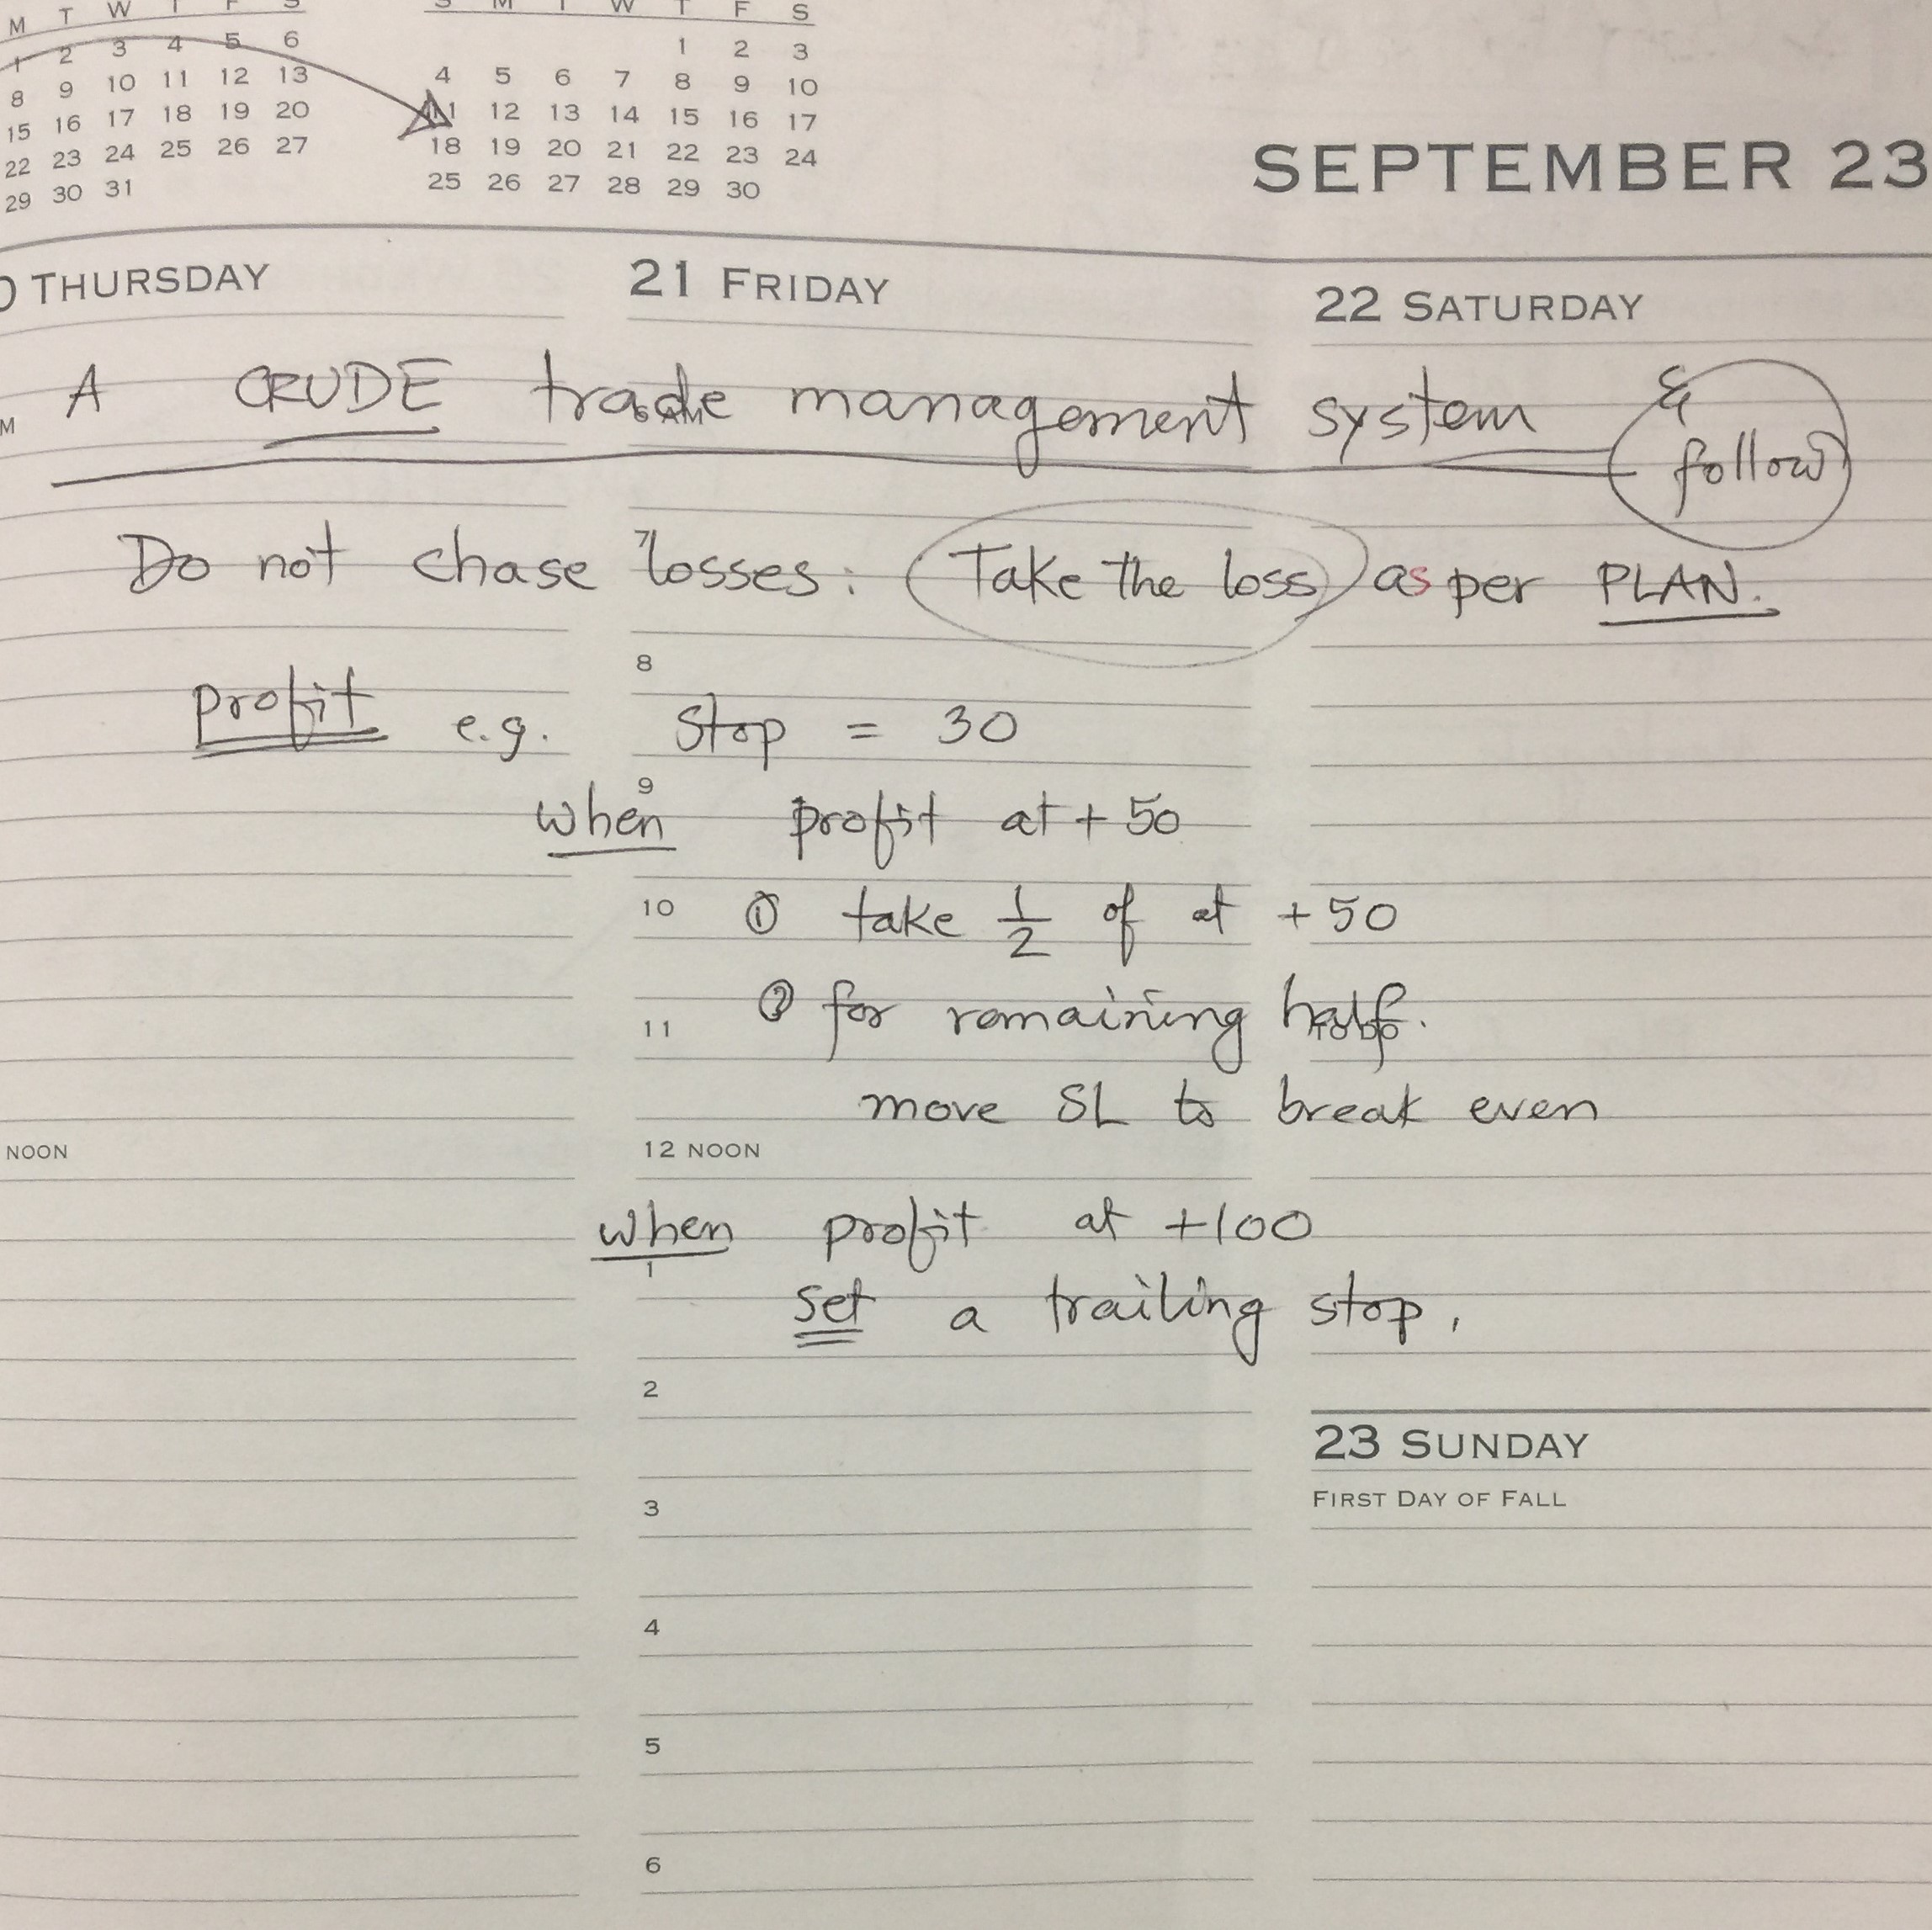 M T W T F S
1 2 3 4 5 6
8 9 10 11 12 13
15 16 17 18 19 20
22 23 24 25 26 27
29 30 31
S M T W T F S
1 2 3
4 5 6 7 8 9 10
11 12 13 14 15 16 17
18 19 20 21 22 23 24
25 26 27 28 29 30
SEPTEMBER 23
THURSDAY
21 FRIDAY
22 SATURDAY
A CRUDE trade management system & follow
6 AM
Do not chase losses. Take the loss as per PLAN.
7
8
Profit e.g. Stop = 30
9
when profit at +50
10
① take 1/2 of at +50
11
② for remaining half.
TO DO
move SL to break even
NOON
12 NOON
when profit at +100
1
set a trailing stop.
2
23 SUNDAY
FIRST DAY OF FALL
3
4
5
6